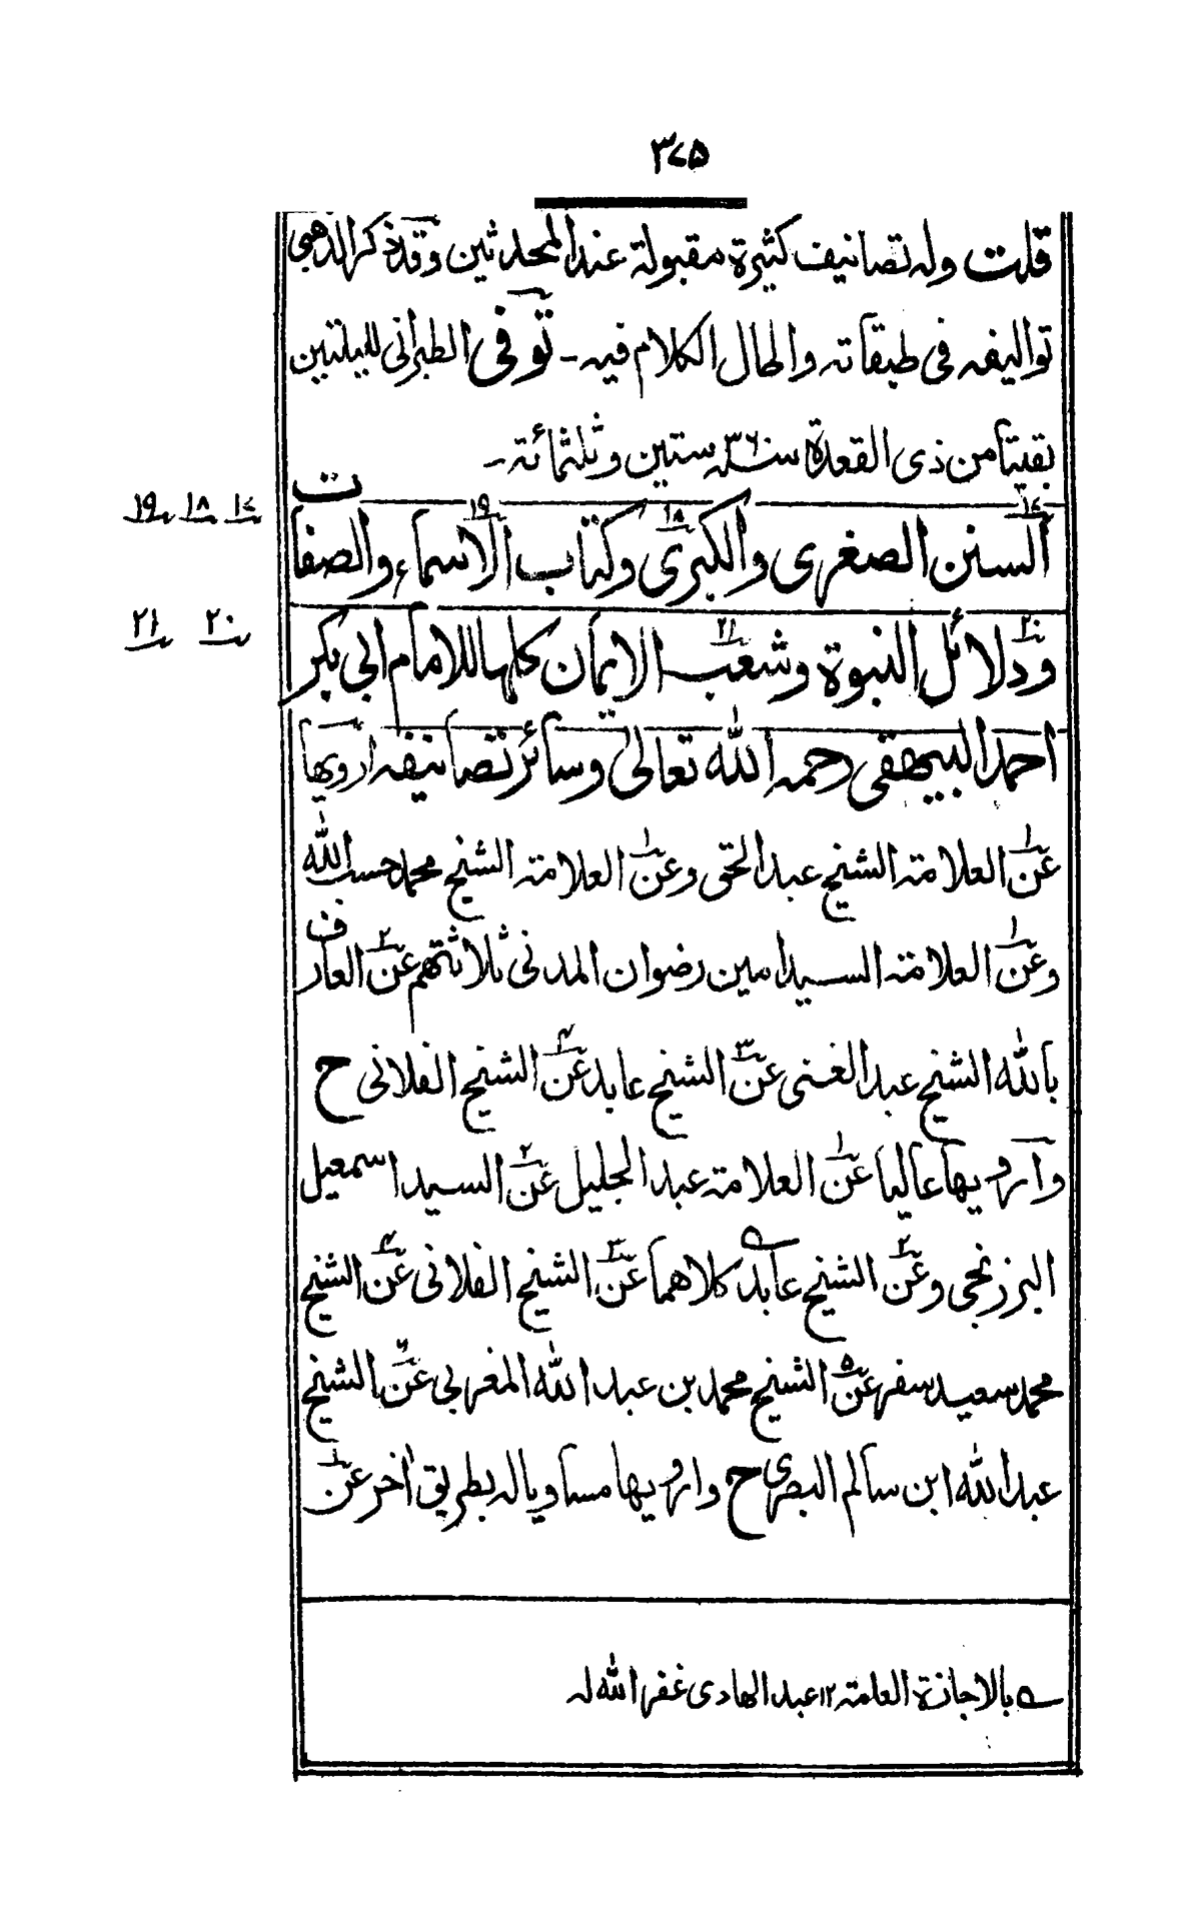 ٣٧٥
قلت وله تصانيف كثيرة مقبولة عند المحدثين وقد ذكر الذهبي
تواليفه في طبقاته واطال الكلام فيه - توفي الطبراني لليلتين
بقيتا من ذي القعدة سنة ٣٦٠ ستين وثلثمائة -
١٧ ١٨ ١٩
السنن الصغرى والكبرى وكتاب الاسماء والصفات
٢٠ ٢١
ودلائل النبوة وشعب الايمان كلها للامام ابي بكر
احمد البيهقي رحمه الله تعالى وسائر تصانيفه ارويها
عن١ العلامة الشيخ عبد الحق وعن١ العلامة الشيخ محمد حسب الله
وعن١ العلامة السيد امين رضوان المدني ثلاثتهم عن٢ العارف
بالله الشيخ عبد الغني عن٣ الشيخ عابد عن٤ الشيخ الفلاني ح
وارويها عاليا عن١ العلامة عبد الجليل عن٢ السيد اسمعيل
البرزنجي وعن٢ الشيخ عابد ے كلاهما عن٣ الشيخ الفلاني عن٤ الشيخ
محمد سعيد سفر عن٥ الشيخ محمد بن عبد الله المغربي عن٦ الشيخ
عبد الله ابن سالم البصري ح وارويها مساويا له بطريق اخر عن١
ے بالاجازة العامة ١٢ عبد الهادي غفر الله له